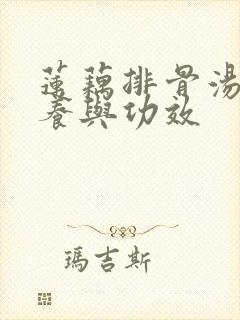 蓮藕排骨湯
養與功效
瑪吉斯